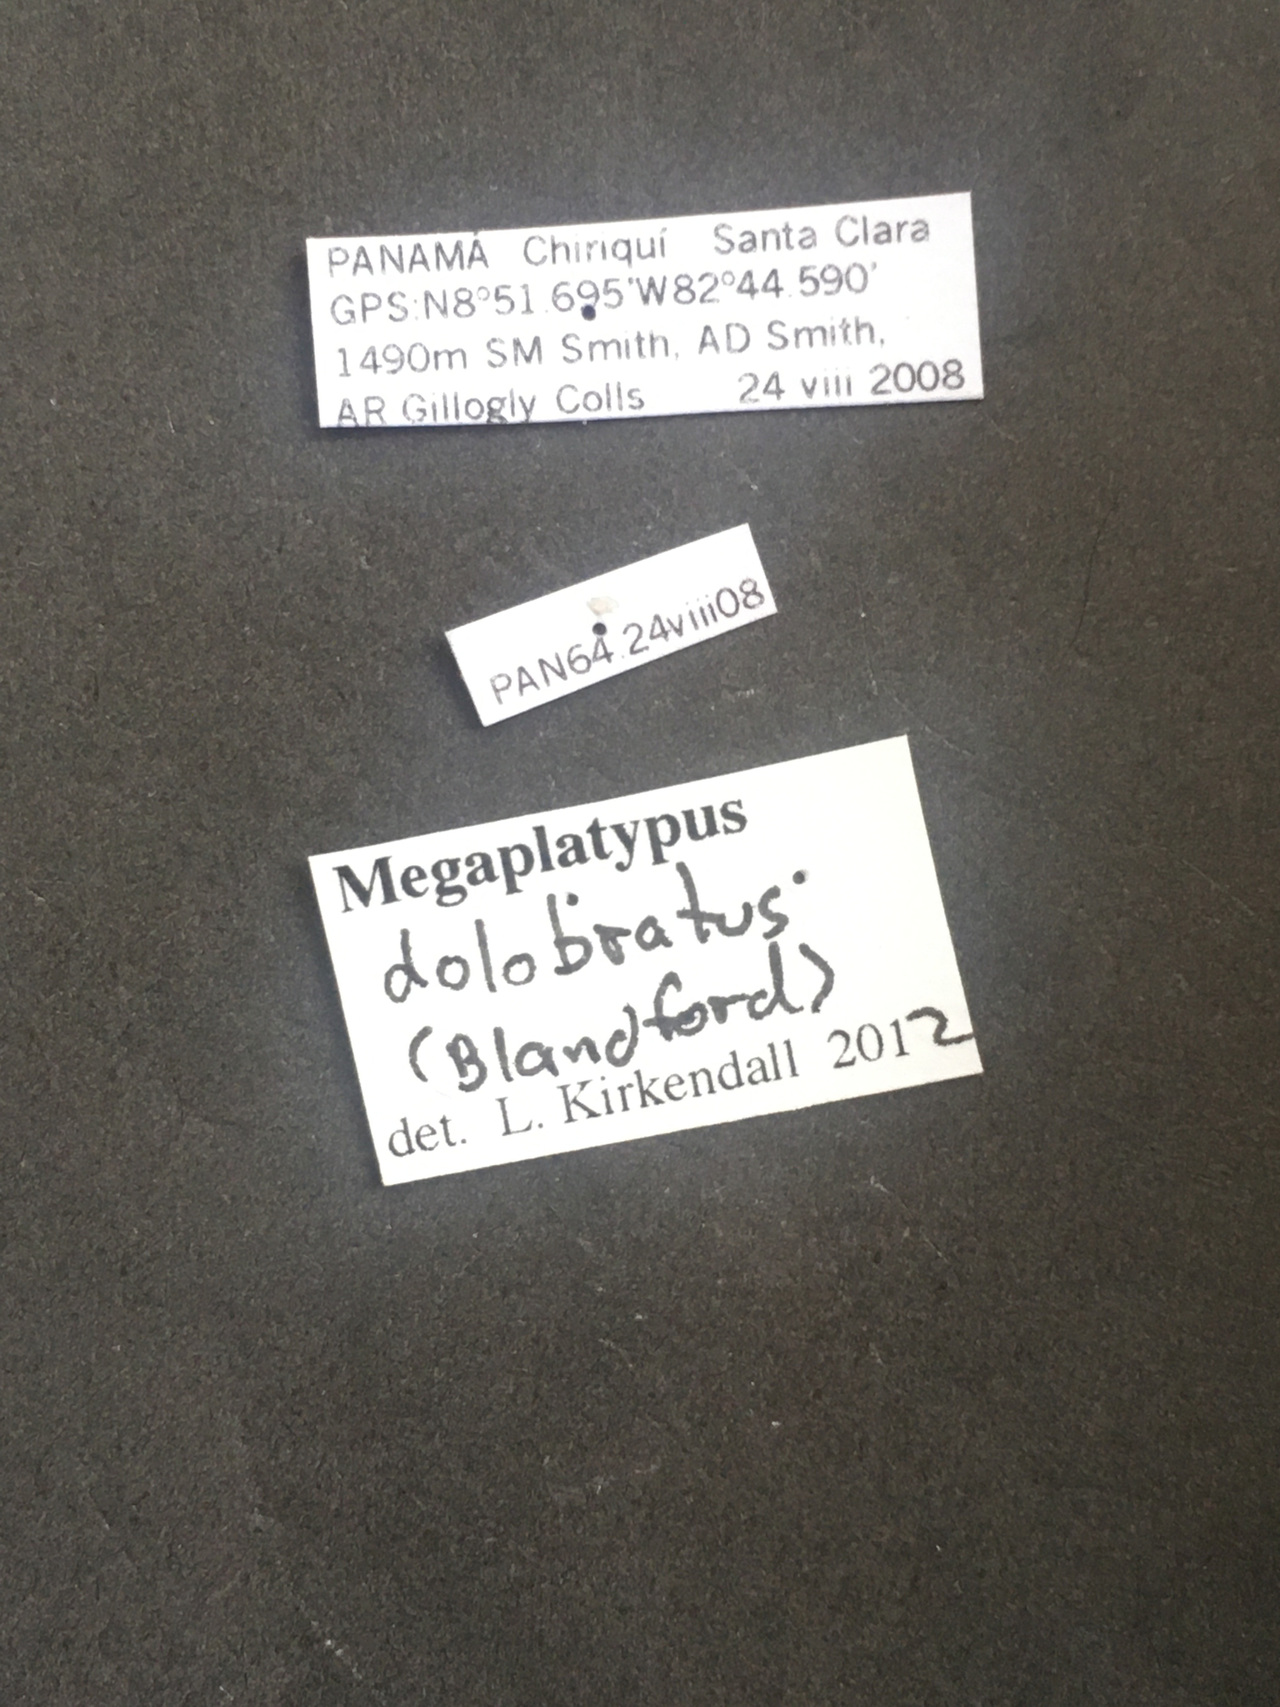 PANAMÁ Chiriquí Santa Clara
GPS:N8°51.695'W82°44.590'
1490m SM Smith, AD Smith,
AR Gillogly Colls 24 viii 2008
PAN64.24viii08
Megaplatypus
dolobratus
(Blandford)
det. L. Kirkendall 2012